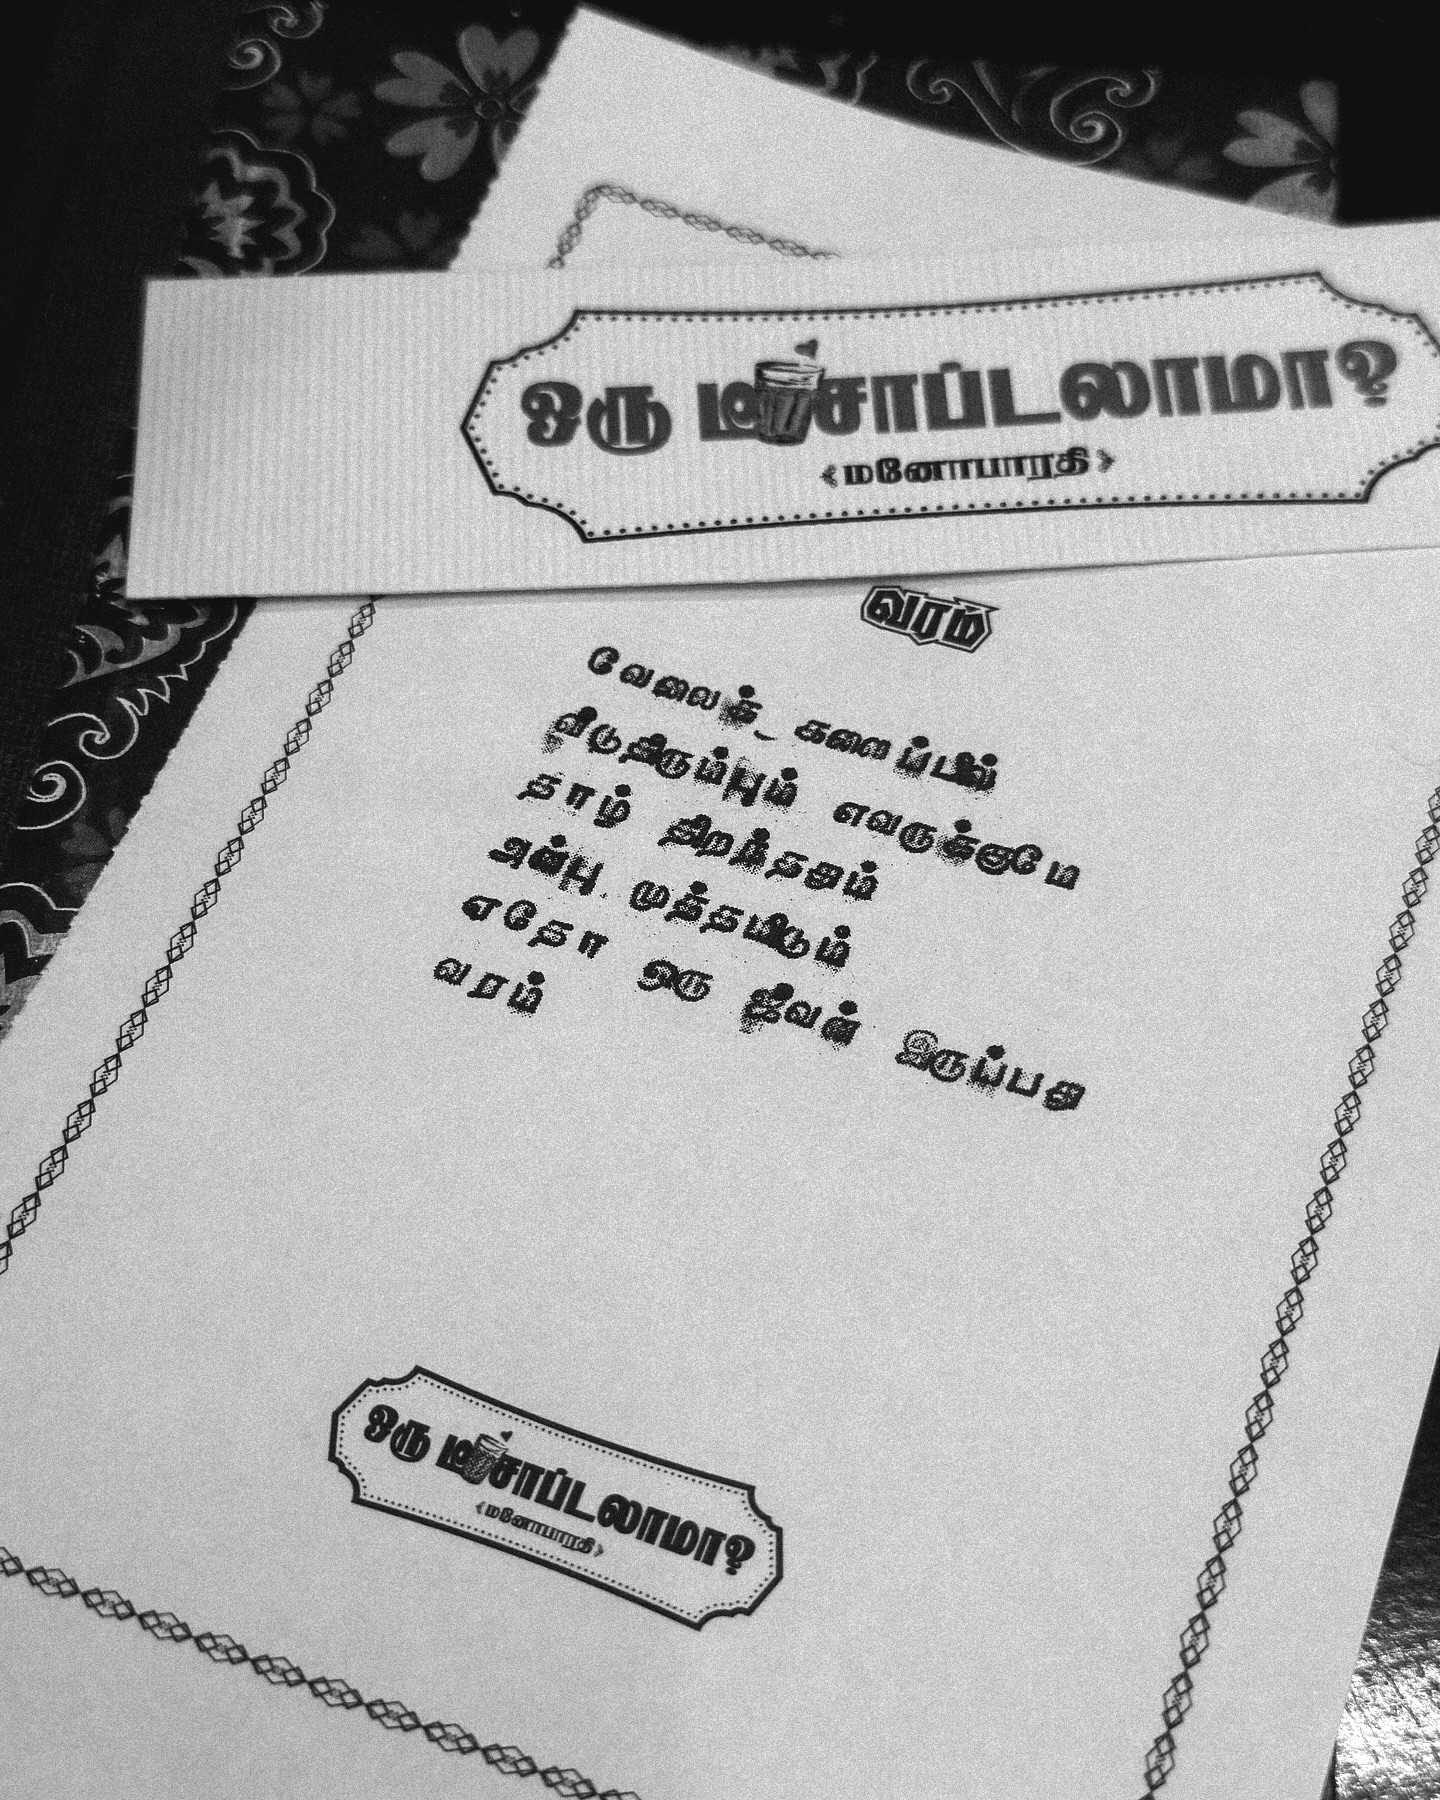 ஒரு டீ சாப்டலாமா?
மனோபாரதி
வரம்
வேலைக் களைப்பில்
வீடுதிரும்பும் எவருக்குமே
தாழ் திறந்ததும்
அன்பு முத்தமிடும்
ஏதோ ஒரு ஜீவன் இருப்பது
வரம்
ஒரு டீ சாப்டலாமா?
மனோபாரதி